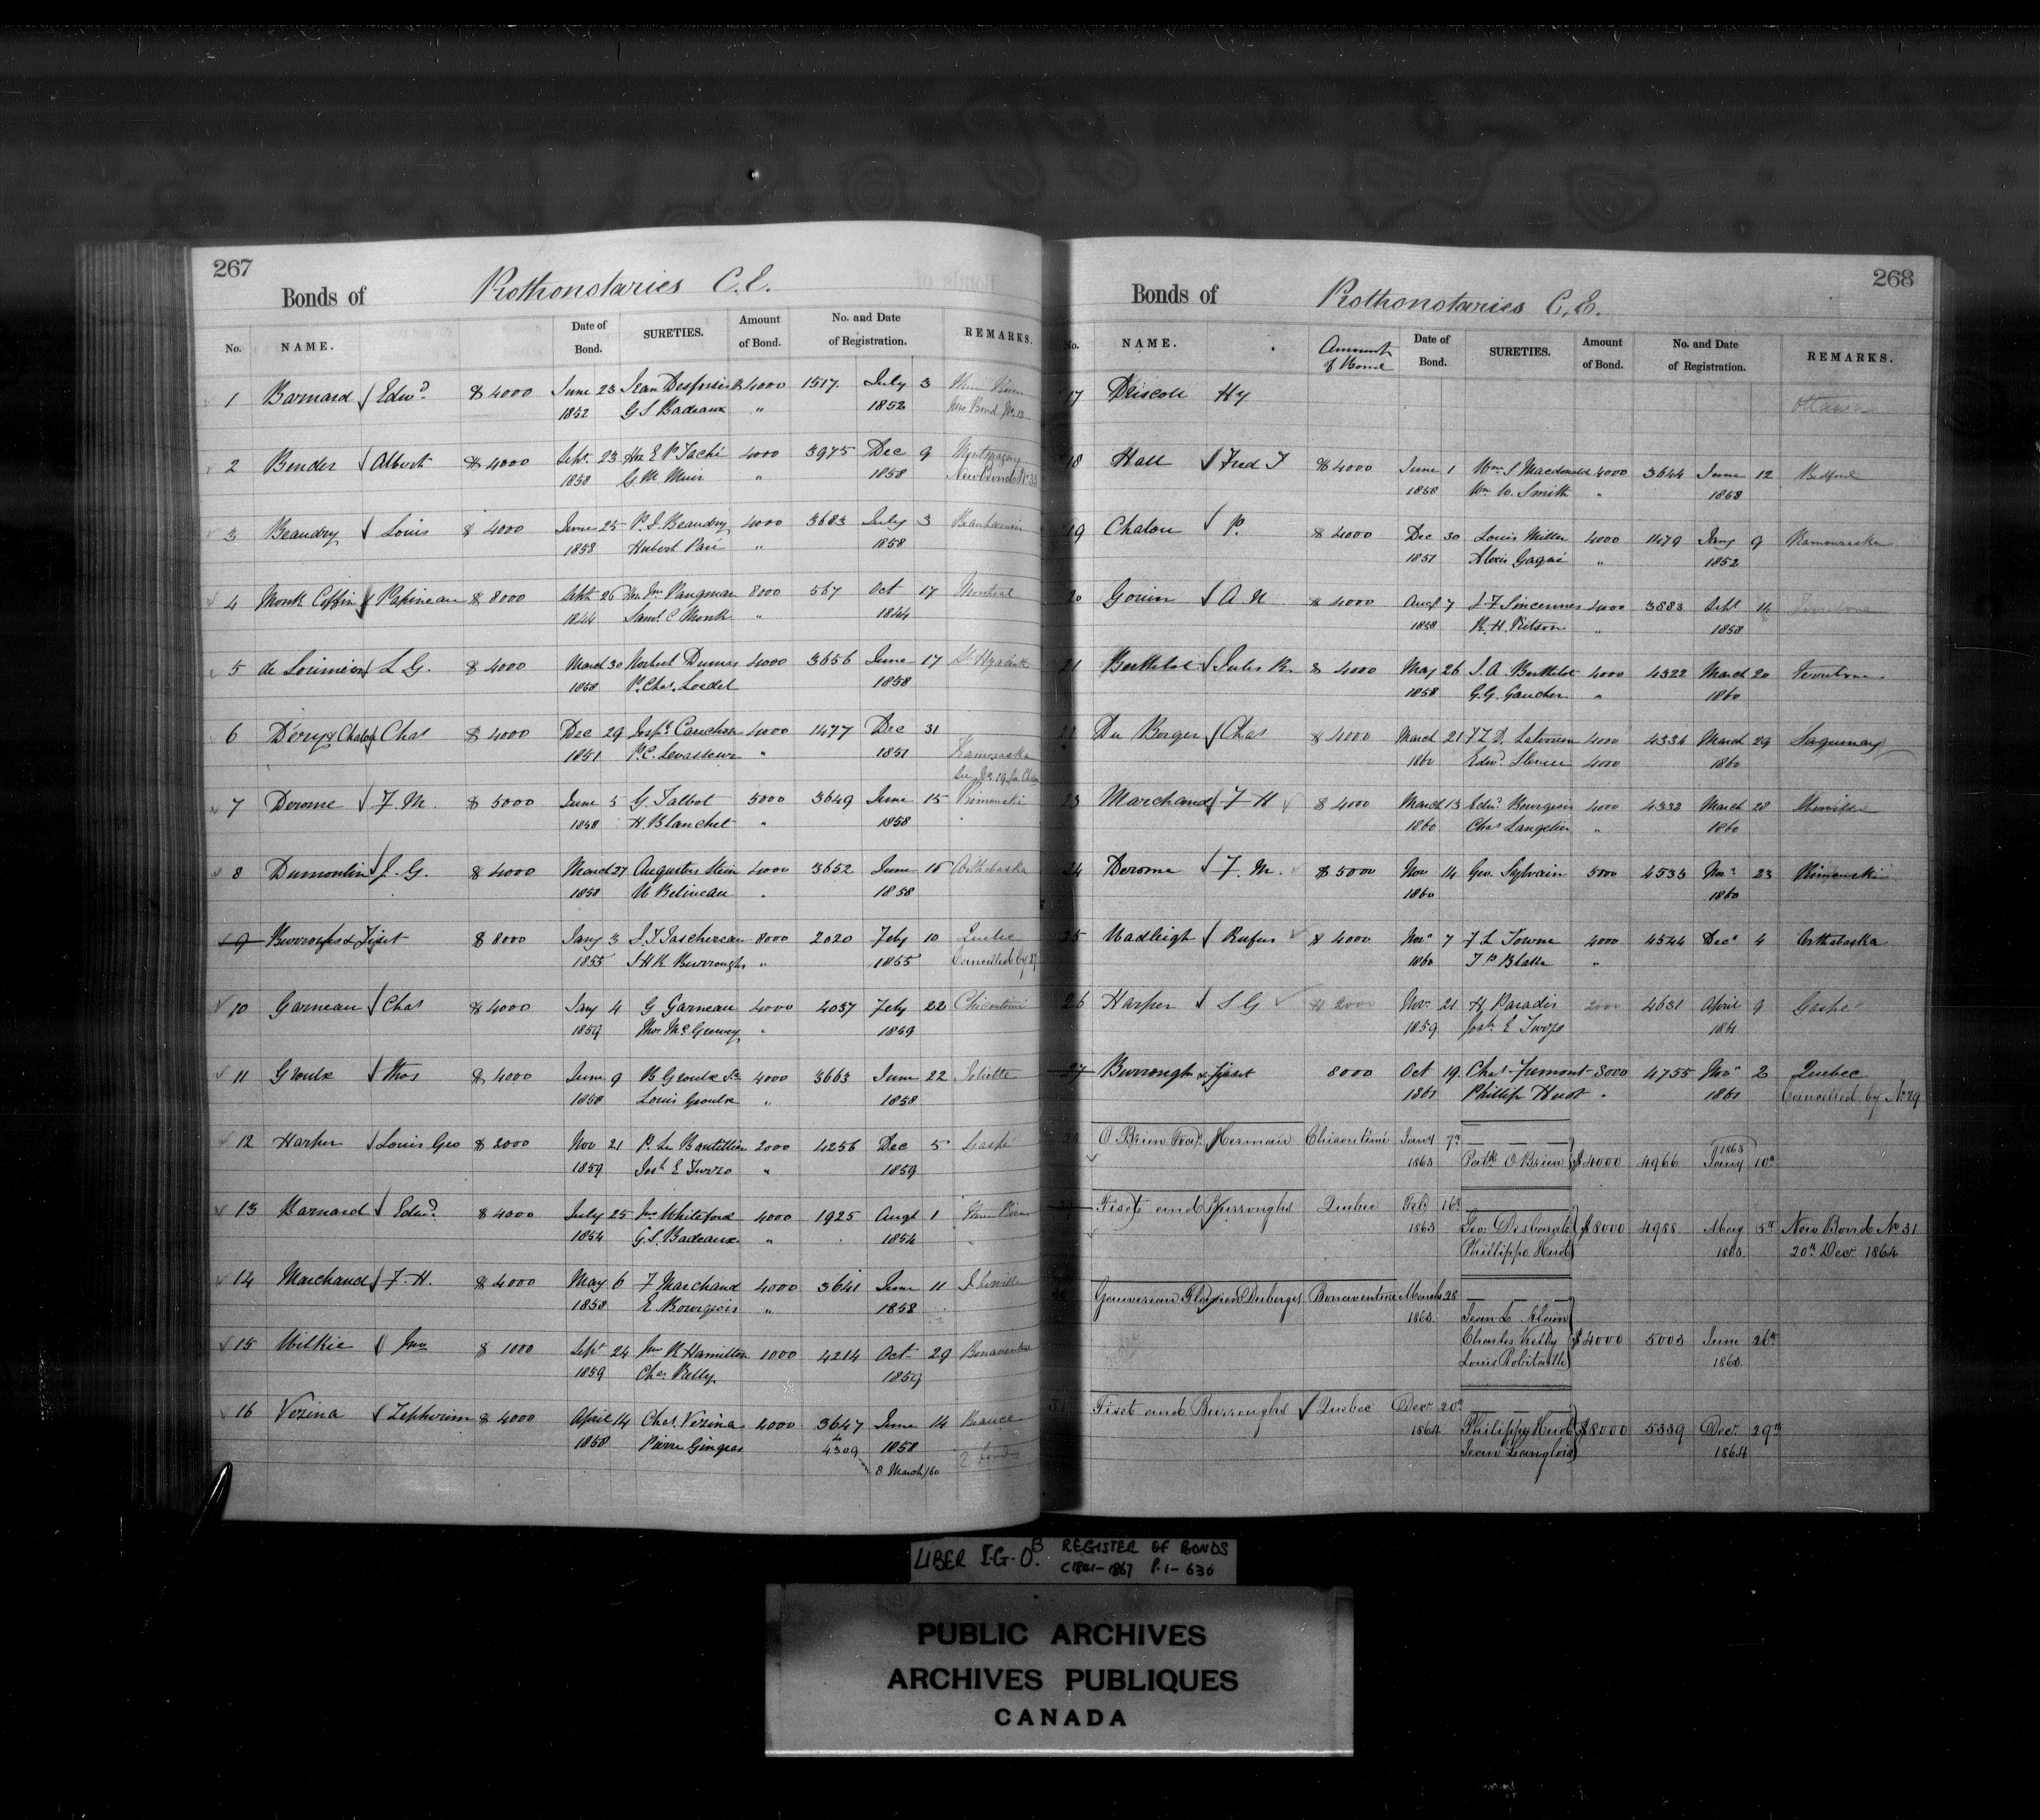 267
Bonds of Prothonotaries C.E.
No. NAME. Date of Bond. SURETIES. Amount of Bond. No. and Date of Registration. REMARKS.
1 Barnard Edwd $ 4000 June 23 Jean Desfossés $ 4000 1517 July 3 Three Rivers
1852 G S Badeaux " 1852 New Bond No. 13
2 Bender Albert $ 4000 Sept. 23 Hon E P Taché 4000 3975 Dec 9 Montmagny
1858 G. M. Muir " 1858 New Bond No 33
3 Beaudry Louis $ 4000 June 25 P. J. Beaudry 4000 3683 July 3 Beauharnois
1858 Hubert Paré " 1858
4 Monk Coffin & Papineau $ 8000 Sept 26 Hon Jno Pangman 8000 567 Oct 17 Montreal
1844 Saml C Monk " 1844
5 de Lorimier L. G. $ 4000 March 30 Norbert Dumas 4000 3656 June 17 St Hyacinthe
1858 P. Chas. Loedel 1858
6 Déry & Chalou Chas $ 4000 Dec 29 Josph Cauchon 4000 1477 Dec 31
1851 P. C. Levasseur " 1851 Kamouraska
See No. 19 for Chalou
7 Derome F. M. $ 5000 June 5 G. Talbot 5000 3649 June 15 Rimouski
1858 H. Blanchet " 1858
8 Dumoulin J. G. $ 4000 March 27 Augustus Stein 4000 3652 June 16 Arthabaska
1858 U Belineau " 1858
9 Burroughs & Fiset $ 8000 Jany 3 J. T. Taschereau 8000 2020 Feby 10 Quebec
1855 J H R Burroughs " 1855 Cancelled by 27
10 Garneau Chas $ 4000 Jany 4 G Garneau 4000 4037 Feby 22 Chicoutimi
1859 Thos McGreevy " 1859
11 Groulx Thos $ 4000 June 9 B Groulx Sr 4000 3663 June 22 Joliette
1858 Louis Groulx " 1858
12 Harper Louis Geo $ 2000 Nov 21 P. Le Boutillier 2000 4256 Dec 5 Gaspé
1859 Josh E Tuzo " 1859
13 Barnard Edwd $ 4000 July 25 Jno Whiteford 4000 1925 Augt 1 Three Rivers
1854 G. S. Badeaux " 1854
14 Marchand F. H. $ 4000 May 6 F Marchand 4000 3641 June 11 Iberville
1858 E. Bourgeois " 1858
15 Wilkie Jno $ 1000 Sept 24 Jno R Hamilton 1000 4214 Oct 29 Bonaventure
1859 Chas Kelly 1859
16 Vezina Zephirin $ 4000 April 14 Chas. Vezina 4000 3647 June 14 Beauce
1858 Pierre Gingras do 4309 1858 2 bonds
8 March/60
268
Bonds of Prothonotaries C.E.
No. NAME. Amount of Bond Date of Bond. SURETIES. Amount of Bond. No. and Date of Registration. REMARKS.
17 Driscoll Hy Ottawa
18 Hall Fred T $ 4000 June 1 Wm S Macdonald 4000 3644 June 12 Bedford
1858 Wm W. Smith " 1858
19 Chalou P. $ 4000 Dec 30 Louis Miller 4000 1479 Jany 9 Kamouraska
1851 Alexis Gagné " 1852
20 Gouin A. N $ 4000 Augt 7 J F Sincennes 4000 3883 Sept 14
1858 R. H. Kitson " 1858
21 Berthelot Jules R. $ 4000 May 26 J. A. Berthelot 4000 4322 March 20 Terrebonne
1858 G. G. Gaucher " 1860
22 Du Berger Chas $ 4000 March 21 4000 4336 March 29 Saguenay
1860 Edwd. Slevin 4000 1860
23 Marchand F H $ 4000 March 13 Edwd. Bourgeois 4000 4338 March 28 Iberville
1860 Chas Langelier " 1860
24 Derome F. M. $ 5000 Nov 14 Geo. Sylvain 5000 4533 Novr 23 Rimouski
1860 1860
25 Wadleigh Rufus $ 4000 Novr 7 F L Towne 4000 4544 Decr 4 Arthabaska
1860 "
26 Harper L G $ 2000 Nov. 21 H. Paradis 2000 4631 April 9 Gaspé
1859 Josh. E Tuzo 1861
27 Burroughs & Fiset 8000 Oct 19 Chas. Fremont 8000 4755 Novr 2 Quebec
1861 Phillip Huot " 1861 Cancelled by No 29
28 O'Brien Herman Chicoutimi Jany 7th
1863 Patk O'Brien $ 4000 4966 Jany 10th 1863
29 Fiset and Burroughs Quebec Feby 16th
1863 Geo: Desbarats $ 8000 4988 May 5th New Bond No 31
Phillippe Huot 1863. 20th Decr 1864
30 Gauvreau Bonaventure March 28
1863. Jean L. Alain
Charles Kelly $ 4000 5003 June 26th
Louis Robitaille 1863.
31 Fiset and Burroughs Quebec Decr 20th
1864 Philippe Huot $ 8000 5339 Decr 29th
Jean Langlois 1864
LIBER I.G. O.B REGISTER OF BONDS
C1841-1867 P.1-636
PUBLIC ARCHIVES
ARCHIVES PUBLIQUES
CANADA